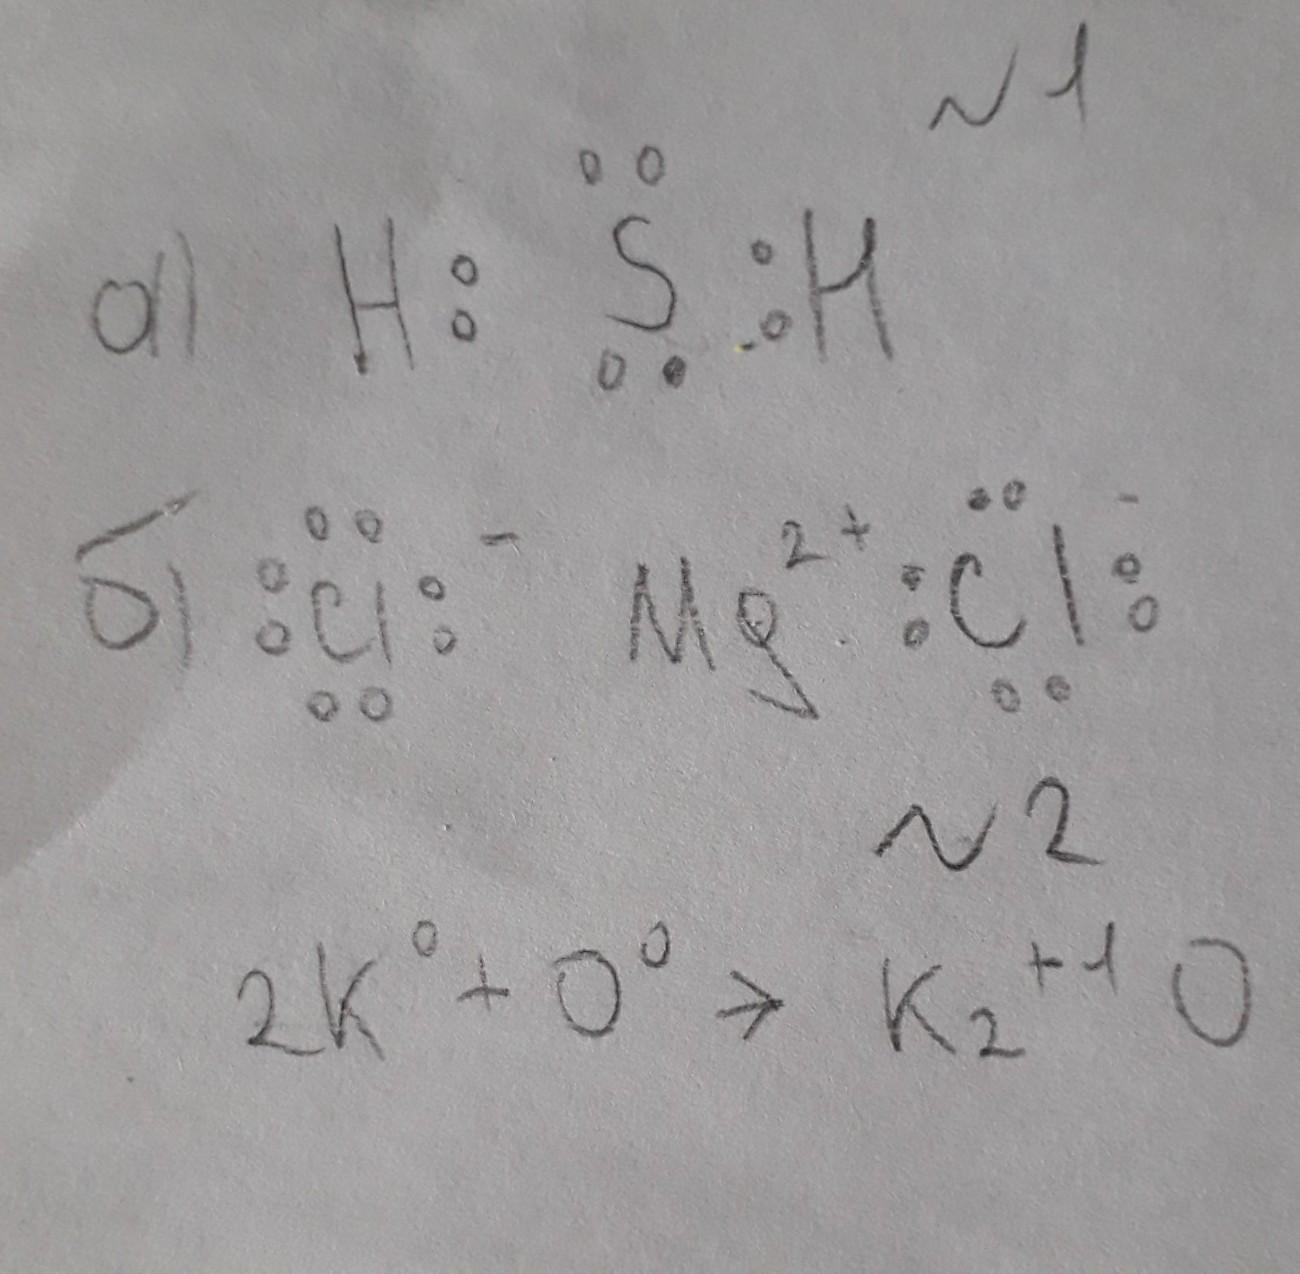 №1
а) H : S̤̈ : H
б) :C̤̈l:⁻ Mg²⁺ :C̤̈l:⁻
№2
2K⁰ + O⁰ → K₂⁺¹O